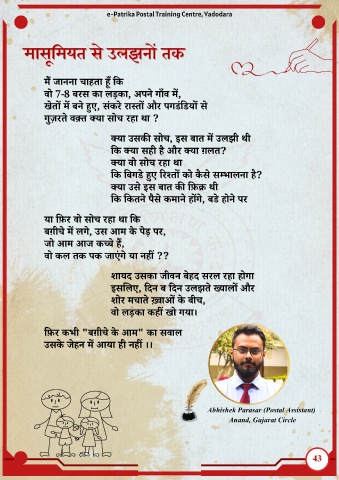 e-Patrika Postal Training Centre, Vadodara
मासूमियत से उलझनों तक
मैं जानना चाहता हूँ कि
वो 7-8 बरस का लड़का, अपने गाँव में,
खेतों में बने हुए, संकरे रास्तों और पगडंडियों से
गुज़रते वक़्त क्या सोच रहा था ?
क्या उसकी सोच, इस बात में उलझी थी
कि क्या सही है और क्या ग़लत?
क्या वो सोच रहा था
कि बिगडे हुए रिश्तों को कैसे सम्भालना है?
क्या उसे इस बात की फ़िक्र थी
कि कितने पैसे कमाने होंगे, बडे होने पर
या फ़िर वो सोच रहा था कि
बग़ीचे में लगे, उस आम के पेड़ पर,
जो आम आज कच्चे हैं,
वो कल तक पक जाएंगे या नहीं ??
शायद उसका जीवन बेहद सरल रहा होगा
इसलिए, दिन ब दिन उलझते ख्यालों और
शोर मचाते ख़्वाओं के बीच,
वो लड़का कहीं खो गया।
फ़िर कभी "बग़ीचे के आम" का सवाल
उसके जेहन में आया ही नहीं ।।
Abhishek Parasar (Postal Assistant)
Anand, Gujarat Circle
43